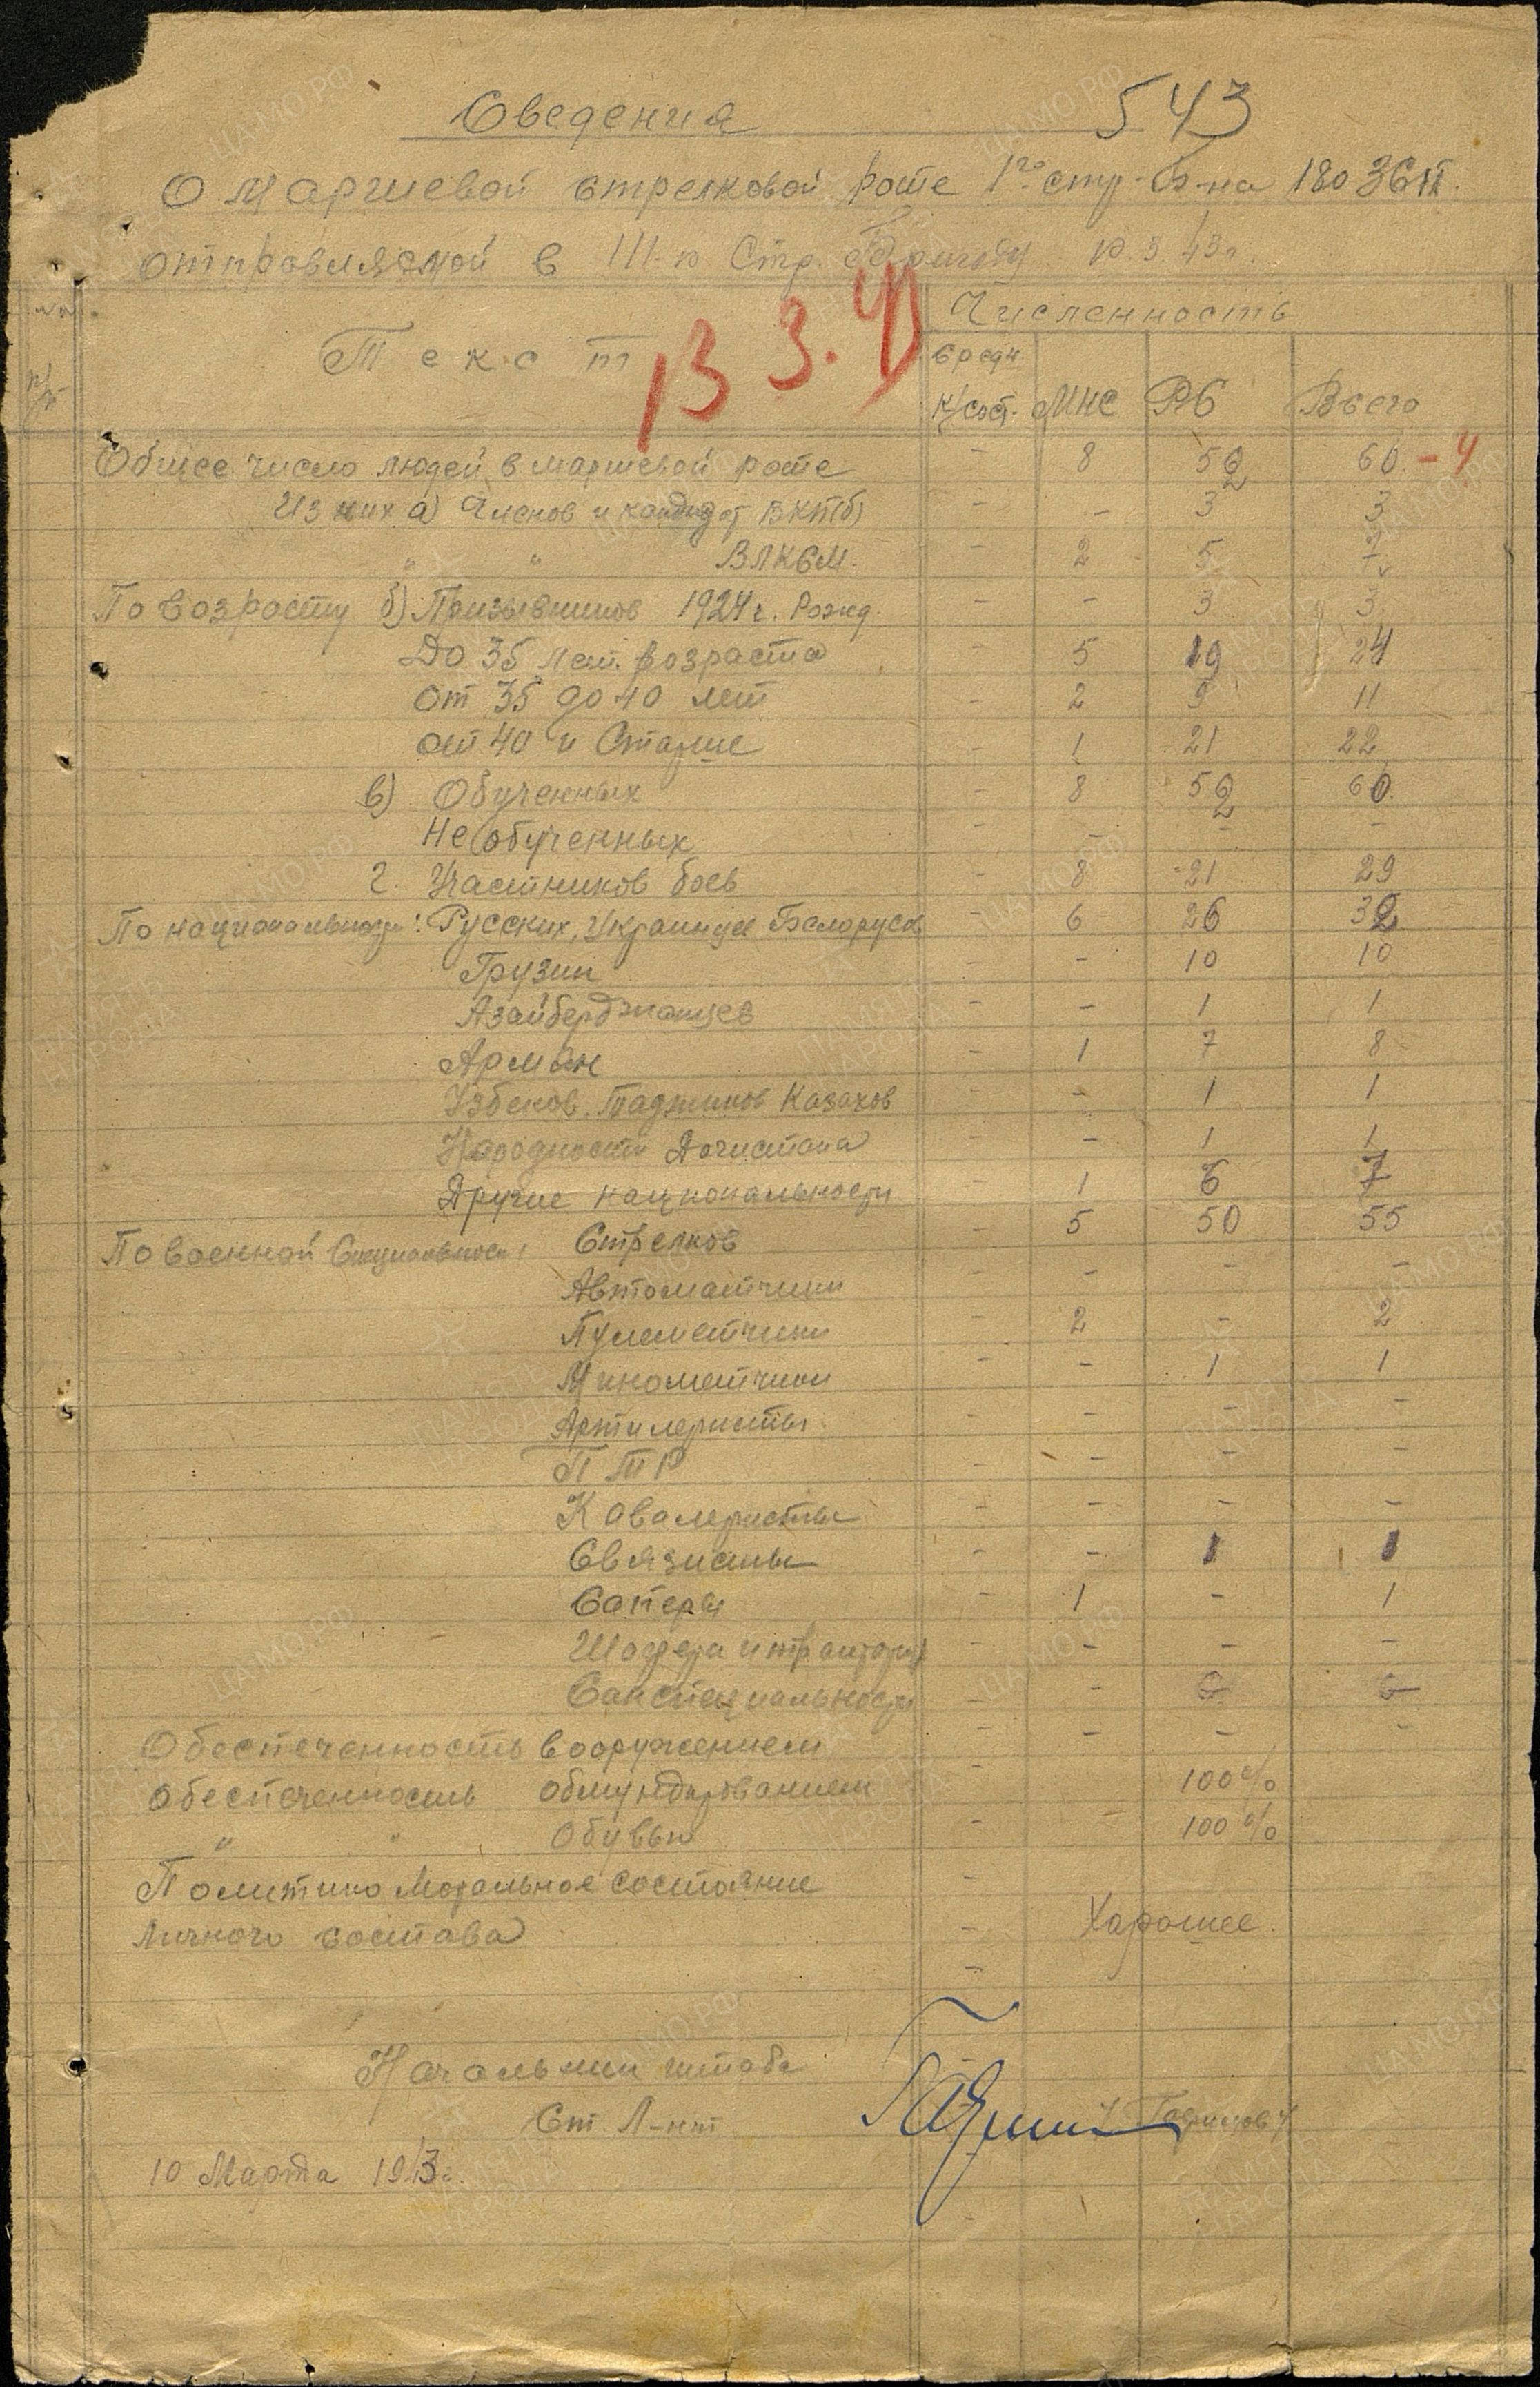 Сведения 543
О маршевой стрелковой роте 1го стр. б-на 180 ЗСП.
отправляемой в 111-ю Стр. Бригаду 10.3.43г.
13 3.
Текст
Численность
п/п
Средн
к/сост. МНС РС Всего
Общее число людей в маршевой роте - 8 52 60 - 4
Из них а) Членов и кандидат ВКП(б) - - 3 3
" " ВЛКСМ. - 2 5 7
По возрасту б) Призывников 1924 г. Рожд. - - 3 3
До 35 лет возраста - 5 19 24
от 35 до 40 лет - 2 9 11
от 40 и Старше - 1 21 22
в) Обученных - 8 52 60
Не обученных - - - -
г. Участников боев - 8 21 29
По национальности: Русских, Украинцев Белорусов - 6 26 32
Грузин - - 10 10
Азайберджанцев - - 1 1
Армян - 1 7 8
Узбеков, Таджиков Казахов - - 1 1
Народности Дагистана - - 1 1
Другие национальности - 1 6 7
По военной Специальност: Стрелков - 5 50 55
Автоматчики - - - -
Пулеметчики - 2 - 2
Минометчики - - 1 1
Артилеристы - - - -
ПТР - - - -
Кавалеристы - - - -
Связисты - - 1 1
Саперы - 1 - 1
Шофера и - - - -
Санспециальности - -
Обеспеченность вооружением - - - -
Обеспеченность обмундированием - 100%
" " Обувью - - 100%
Политико Моральное состояние -
Личного состава - Харошее.
-
Начальник штаба
Ст. Л-нт
10 Марта 1943г.